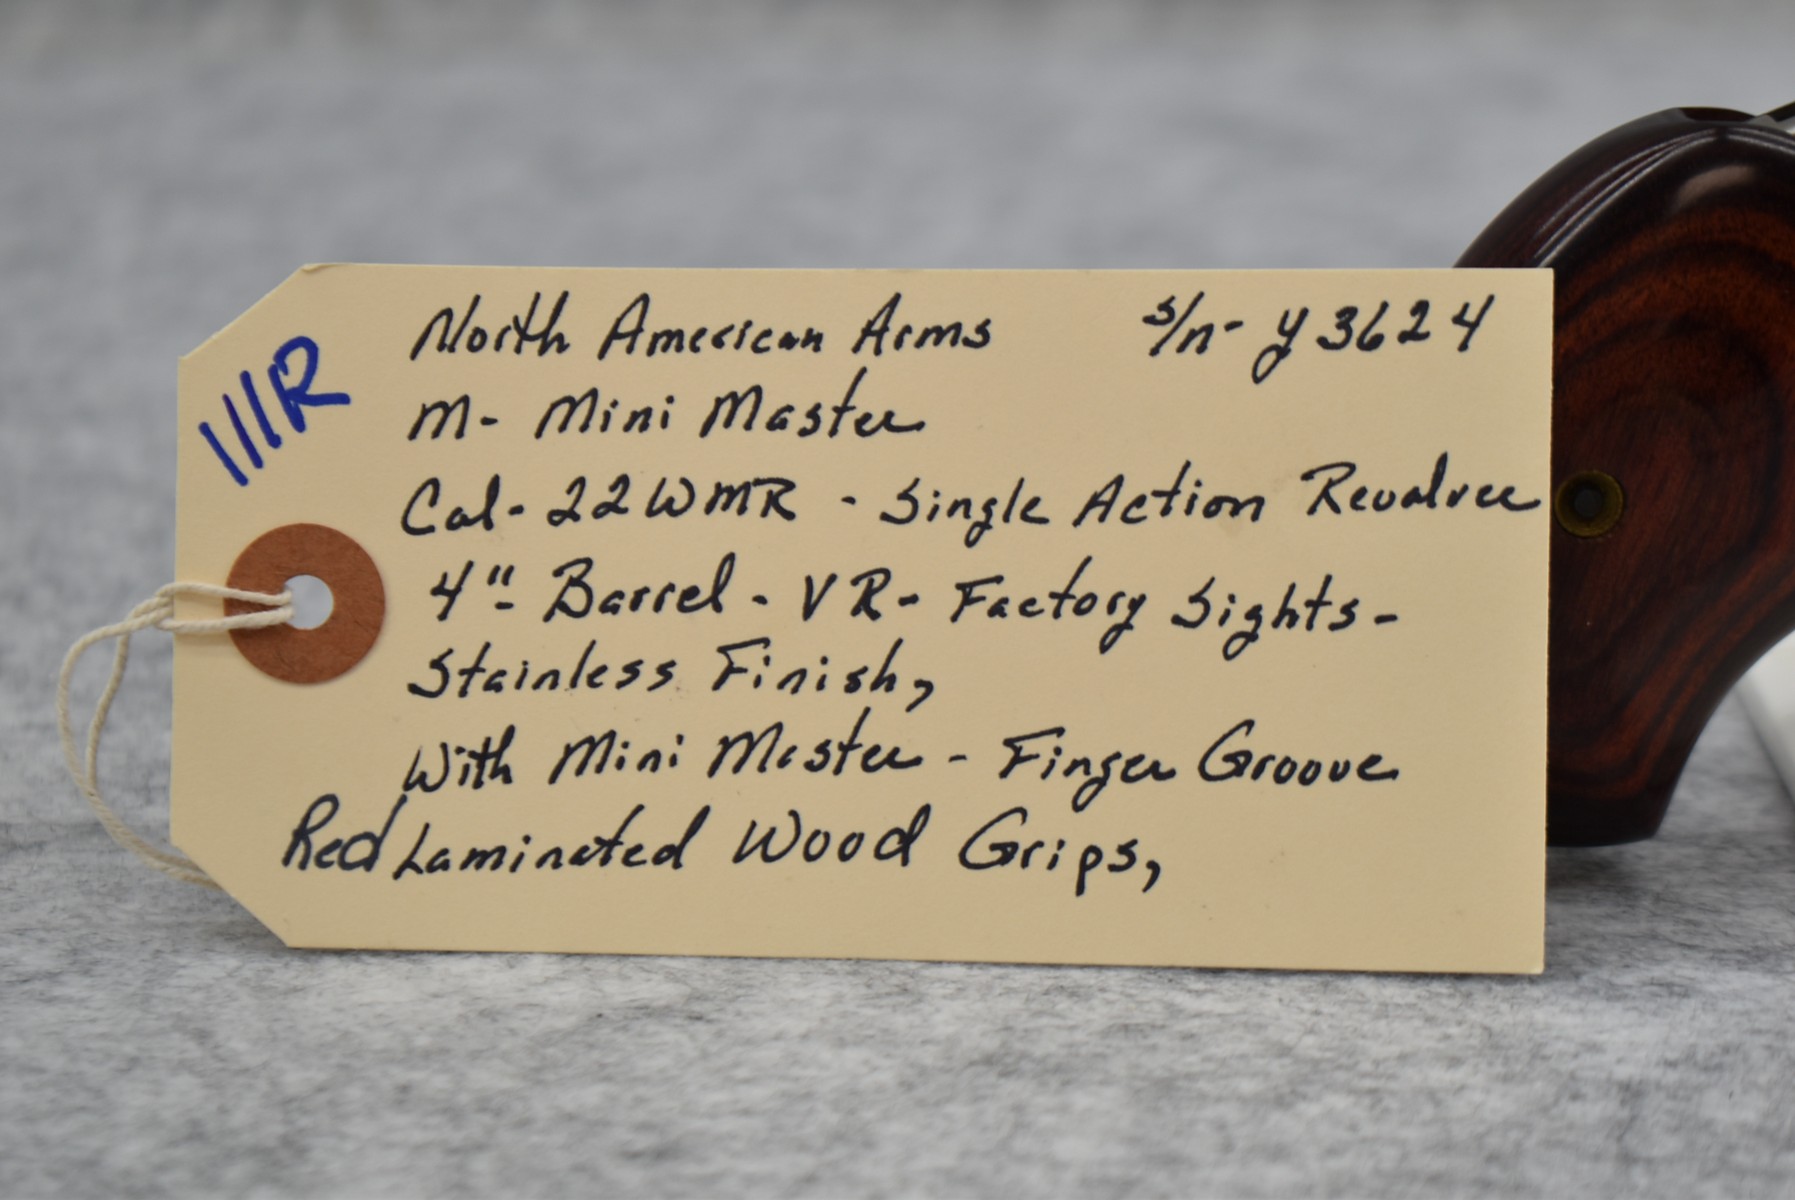 111R
North American Arms s/n- Y3624
M- Mini Master
Cal- 22WMR - Single Action Revolver
4"- Barrel - VR- Factory Sights-
Stainless Finish,
With Mini Master - Finger Groove
Red Laminated Wood Grips,